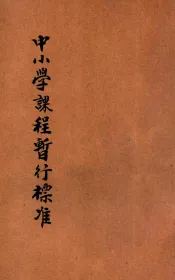 中小學課程暫行標准